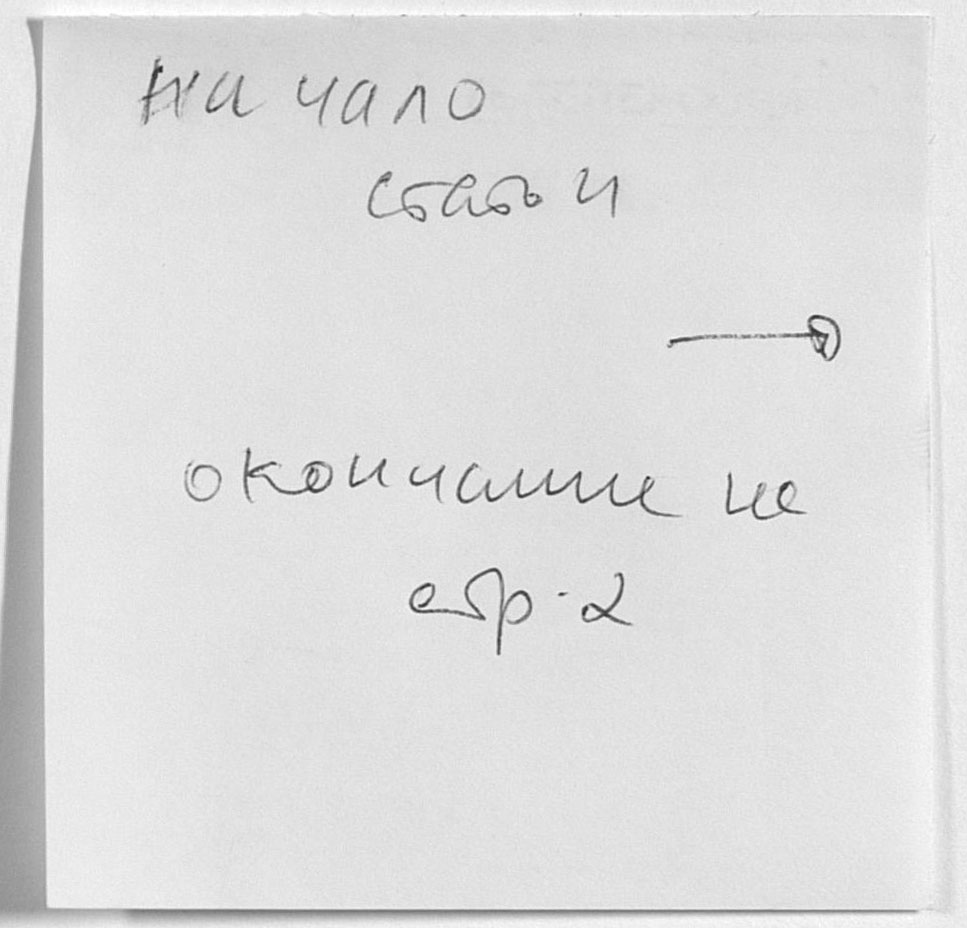 Начало
статьи
окончание на
стр. 2